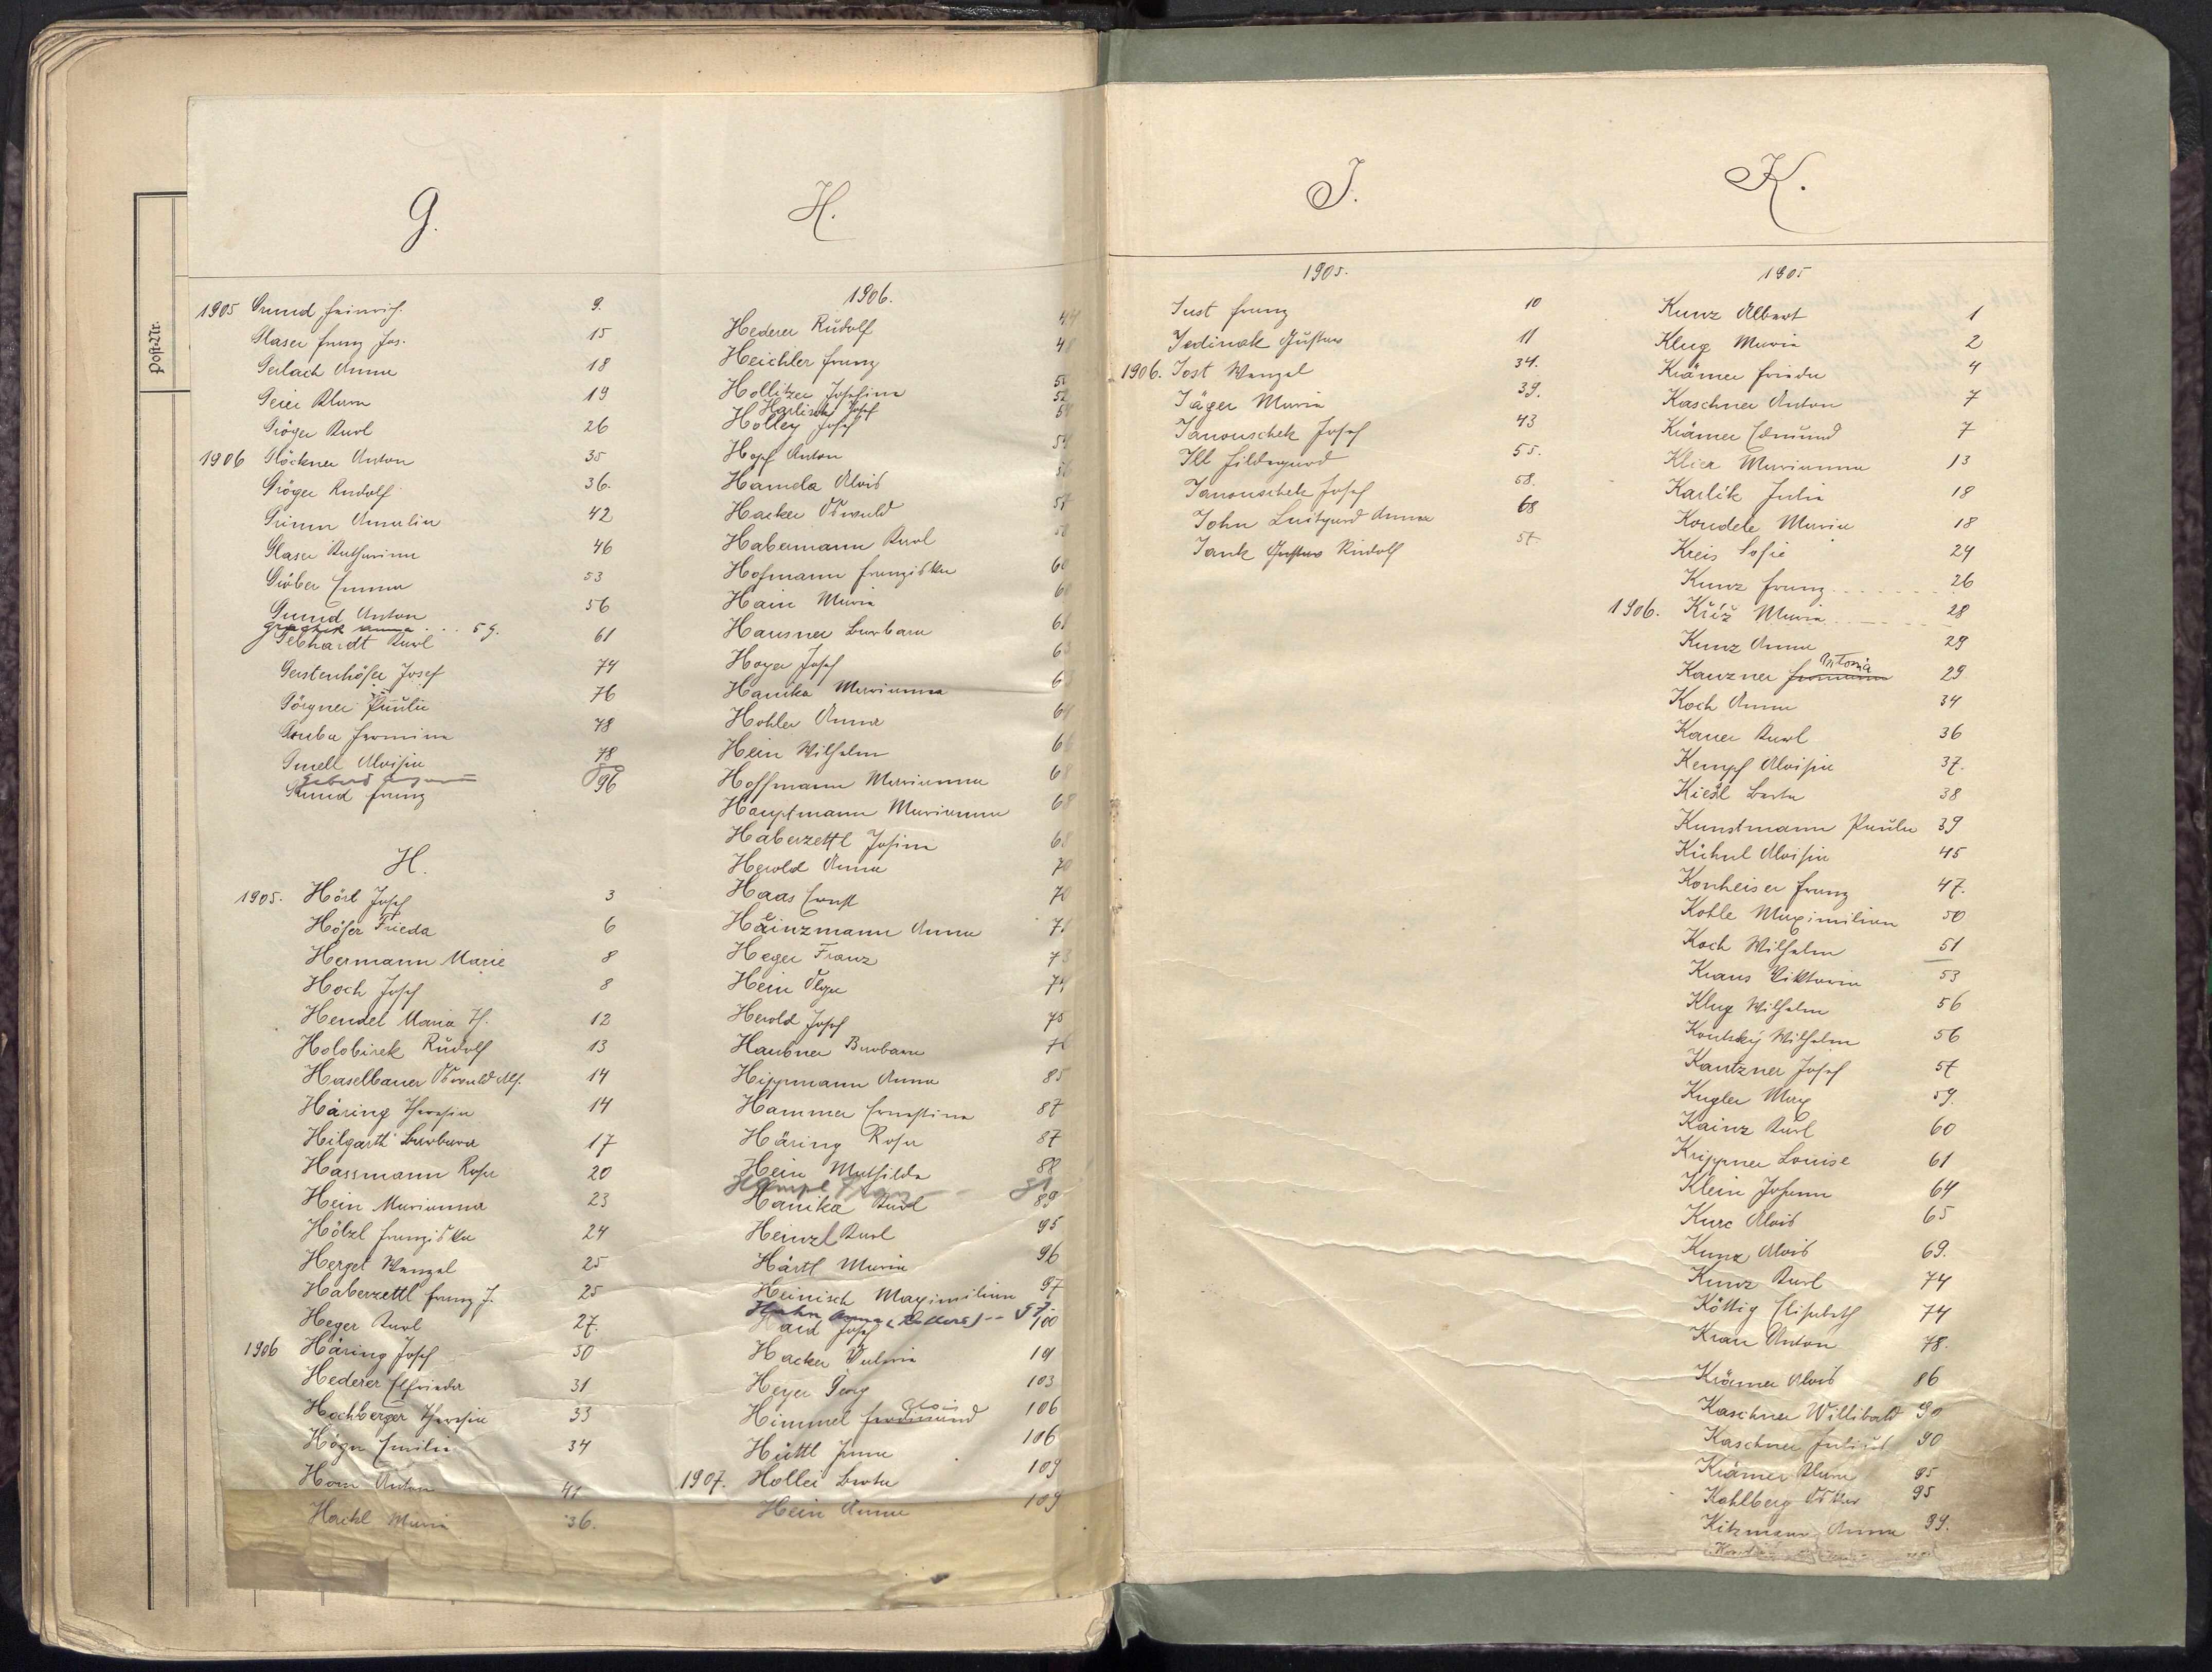 Post-Nr.
G.
1905 Gmund Heinrich. 9.
Glaser Franz Jos. 15
Gerlach Anna 18
Geier Klara 19
Gröger Karl 26
1906 Glöckner Anton 35
Gröger Rudolf 36.
Grimm Amalia 42
Glaser Katharina 46
Gröber Emma 53
Gmund Anton 56
Anna . . . 59.
Gebhardt Karl 61
Gerstenhöfer Josef 74
Görgner Paulie 76
Gruba Hermine 78
Gmell Aloisia 78
Gmund Franz 96
H.
1905. Hörl Josef 3
Höfer Frieda 6
Hermann Marie 8
Hoch Josef 8
Hendel Maria Th. 12
Holobirek Rudolf 13
Haselbauer Oswald Alf. 14
Häring Theresia 14
Hilgarth Barbara 17
Hassmann Rosa 20
Hein Marianna 23
Hölzl Franziska 24
Hergel Wenzel 25
Haberzettl Franz J. 25
Heger Karl 27.
1906 Häring Josef 30
Hederer Elfrieda 31
Hochberger Theresia 33
Högn Emilie 34
Horn Anton 41
Hackl Maria 36.
H.
1906.
Hederer Rudolf 44
Heichler Franz 48
Hollitzer Josefine 50
Harlisch Josef 52
Holley Josef 54
Hopf Anton 54
Hamela Alois 56
Hacker Oswald 57
Habermann Karl 58
Hofmann Franziska 60
Hain Maria 60
Hausner Barbara 61
Hoyer Josef 63
Hanika Marianna 63
Hohler Anna 64
Hein Wilhelm 66
Hoffmann Marianna 68
Hauptmann Marianna 68
Haberzettl Josina 68
Herold Anna 70
Haas Ernst 70
Heinzmann Anna 71
Heger Franz 73
Hein Olga 74
Herold Josef 75
Haubner Barbara 76
Hippmann Anna 85
Hammer Ernestine 87
Häring Rosa 87
Hein Mathilda 88
Hampl Franz
Hanika Karl 89
Heinzl Karl 95
Härtl Maria 96
Heinisch Maximilian 97
Hahn Anna 97.
Josef 100
Hacker Valerie 101
Heyer Georg 103
Himmel Ferdinand Alois 106
Hüttl Anna 106
1907. Hollei Berta 109
Hein Anna 109
I.
1905.
Just Franz 10
Jedinak Gustav 11
1906. Jost Wenzel 34.
Jäger Maria 39.
Janouschek Josef 43
Ill Hildegard 55.
Janouschek Josef 58.
John Luitgard Anna 68
Jank Gustav Rudolf 57.
K.
1905
Kunz Albert 1
Klug Maria 2
Krämer Frieda 4
Kaschner Anton 7
Krämer Edmund 7
Klier Marianna 13
Karlík Julia 18
Koudele Maria 18
Kreis Sofie 24
Kunz Franz 26
1906. Kříž Maria 28
Kunz Anna 29
Kauzner Antonia 29
Koch Anna 34
Kauer Karl 36
Kempf Aloisia 37.
Kiesl Berta 38
Kunstmann Paula 39
Kühnl Aloisia 45
Konheiser Franz 47.
Kohle Maximilian 50
Koch Wilhelm 51
Kraus Viktoria 53
Klug Wilhelm 56
Koutský Wilhelm 56
Kautzner Josef 57
Kugler Max 59.
Kainz Karl 60
Krippner Louise 61
Klein Johann 64
Kurc Alois 65
Kunz Alois 69.
Kunz Karl 74
Köttig Elisabeth 74
Krau Anton 78.
Krämer Alois 86
Kaschner Willibald 90
Kaschner Julius 90
Krämer Klara 95
Kohlberg Oskar 95
Kitzmann Anna 99.